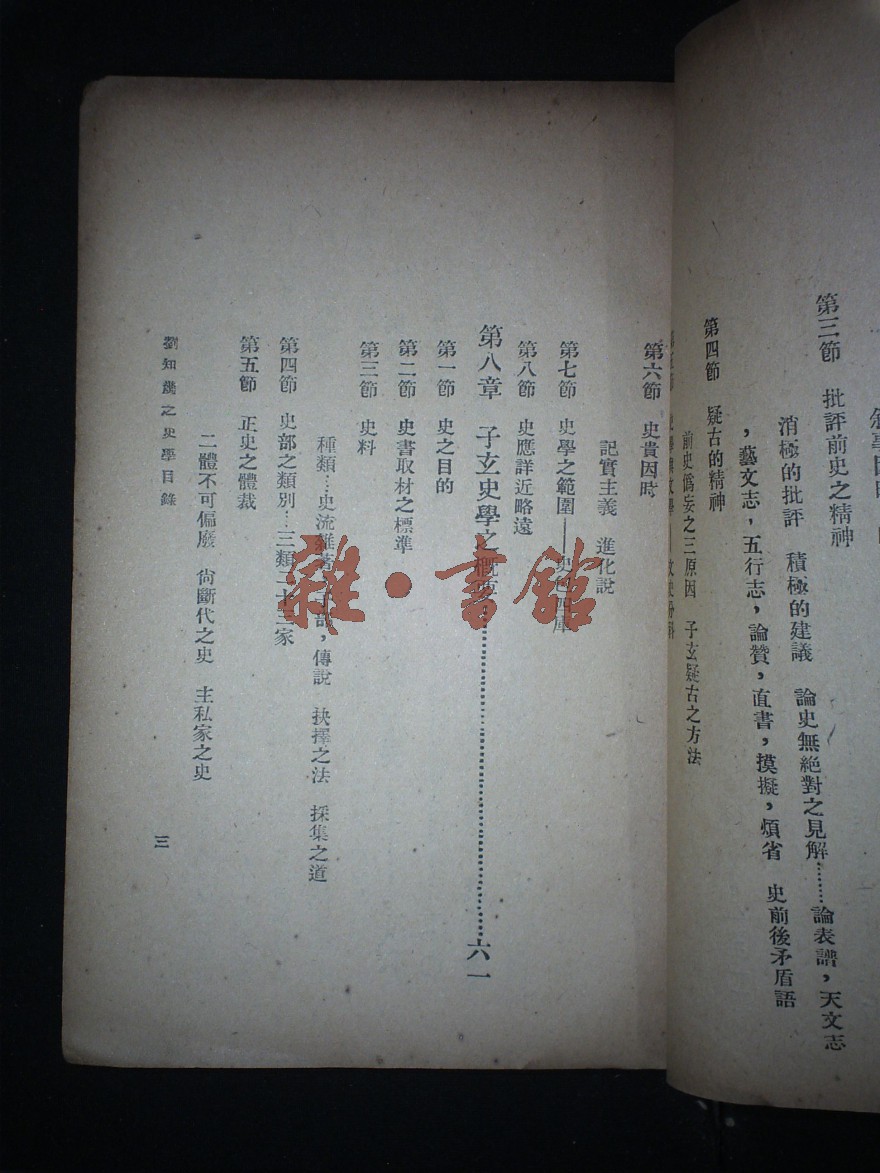 第三節　批評前史之精神
消極的批評　積極的建議　論史無絕對之見解……論表譜，天文志
，藝文志，五行志，論贊，直書，摸擬，煩省　史前後矛盾語
第四節　疑古的精神
前史僞妄之三原因　子玄疑古之方法
第六節　史貴因時
記實主義　進化說
第七節　史學之範圍——史
第八節　史應詳近略遠
第八章　子玄史學之概要……六一
第一節　史之目的
第二節　史書取材之標準
第三節　史料
種類…史流雜著，傳說　抉擇之法　採集之道
第四節　史部之類別…三類二十三家
第五節　正史之體裁
二體不可偏廢　尙斷代之史　主私家之史
劉知幾之史學目錄
三
雜·書館